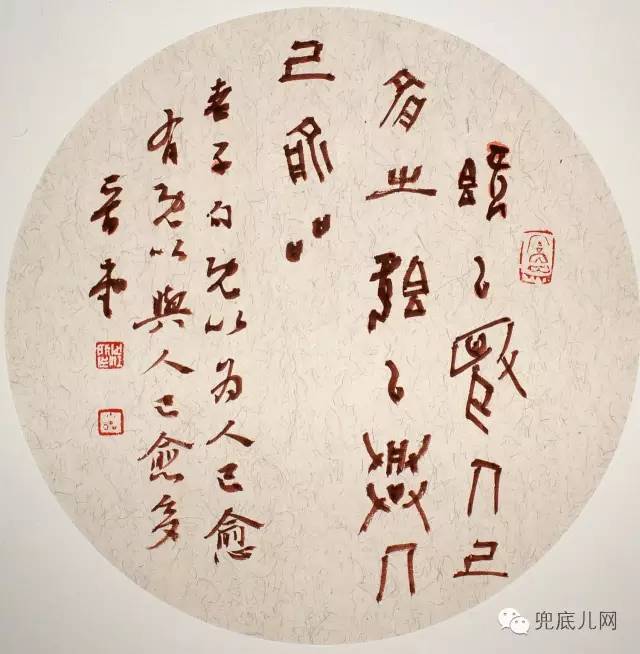 既以為人己
愈有既以與人
己愈多
老子曰既以为人己愈
有既以與人己愈多
兜底儿网